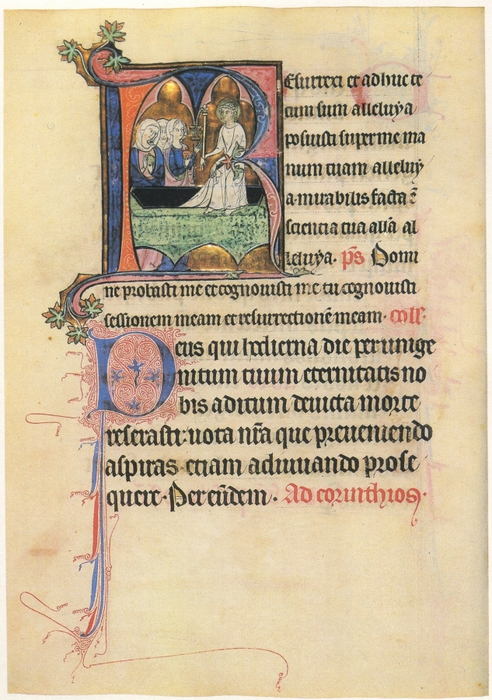 Resurrexi et adhuc te
cum sum alleluya
posuisti super me ma
num tuam alleluy
a mirabilis facta ē
sciencia tua aƚƚa al
leluya. p̄s Domi
ne probasti me et cognouisti me tu cognouisti
sessionem meam et resurrectionē meam. coƚƚ.
Deus qui hodierna die per unige
nitum tuum eternitatis no
bis aditum deuicta morte
reserasti. uota nr̄a que preueniendo
aspiras. etiam adiuuando prose
quere. Per eūdem. Ad corinthios.